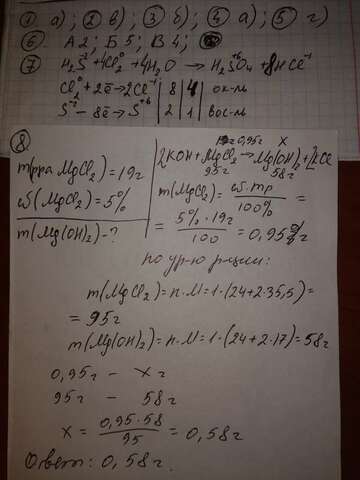 ① а); ② в); ③ б); ④ а); ⑤ г)
⑥ А2; Б5; В4;
⑦ H₂S⁻² + 4Cl₂⁰ + 4H₂O → H₂S⁺⁶O₄ + 8HCl⁻¹
Cl₂⁰ + 2ē → 2Cl⁻¹ | 8 | 4 | ок-ль
S⁻² – 8ē → S⁺⁶ | 2 | 1 | вос-ль
⑧
m(р-ра MgCl₂) = 19г
ω(MgCl₂) = 5%
m(Mg(OH)₂) - ?
0,95г x
2KOH + MgCl₂ → Mg(OH)₂ + 2KCl
95г 58г
m(MgCl₂) = ω·mр / 100% =
= 5%·19г / 100 = 0,95г
по ур-ю р-ции:
m(MgCl₂) = n·M = 1·(24+2·35,5) =
= 95г
m(Mg(OH)₂) = n·M = 1·(24+2·17) = 58г
0,95г – xг
95г – 58г
x = 0,95·58 / 95 = 0,58г
Ответ: 0,58г.